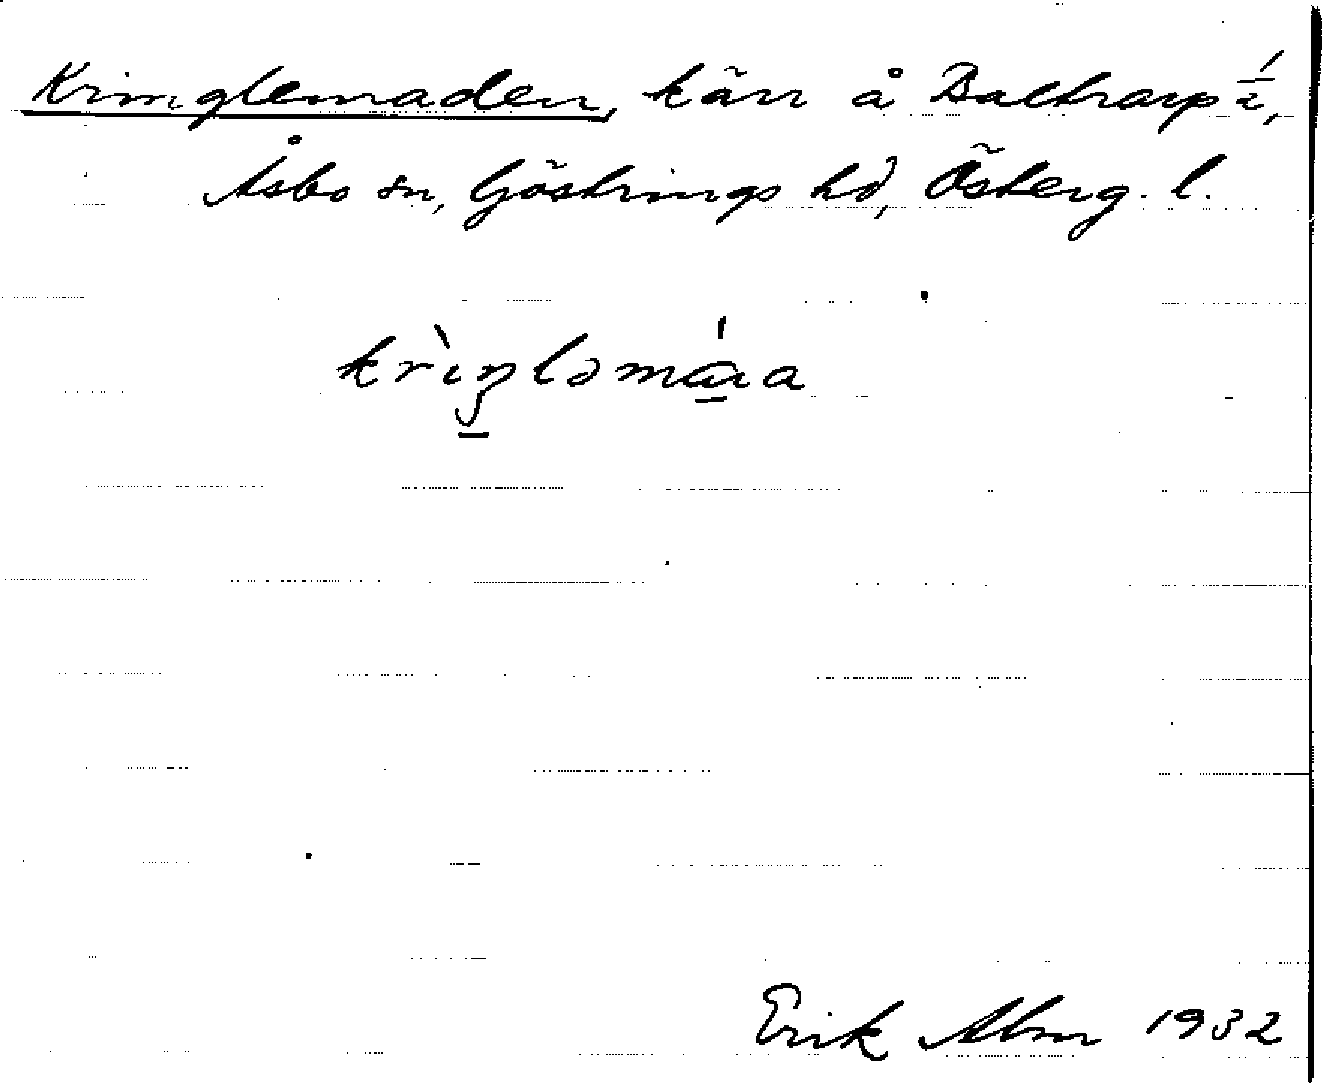 Kringlemaden, kärr å Baltrarp 1/2,
Åsbo sn, Göstrings hd, Österg. l.
krìŋləmáɑa
Erik Alm 1932